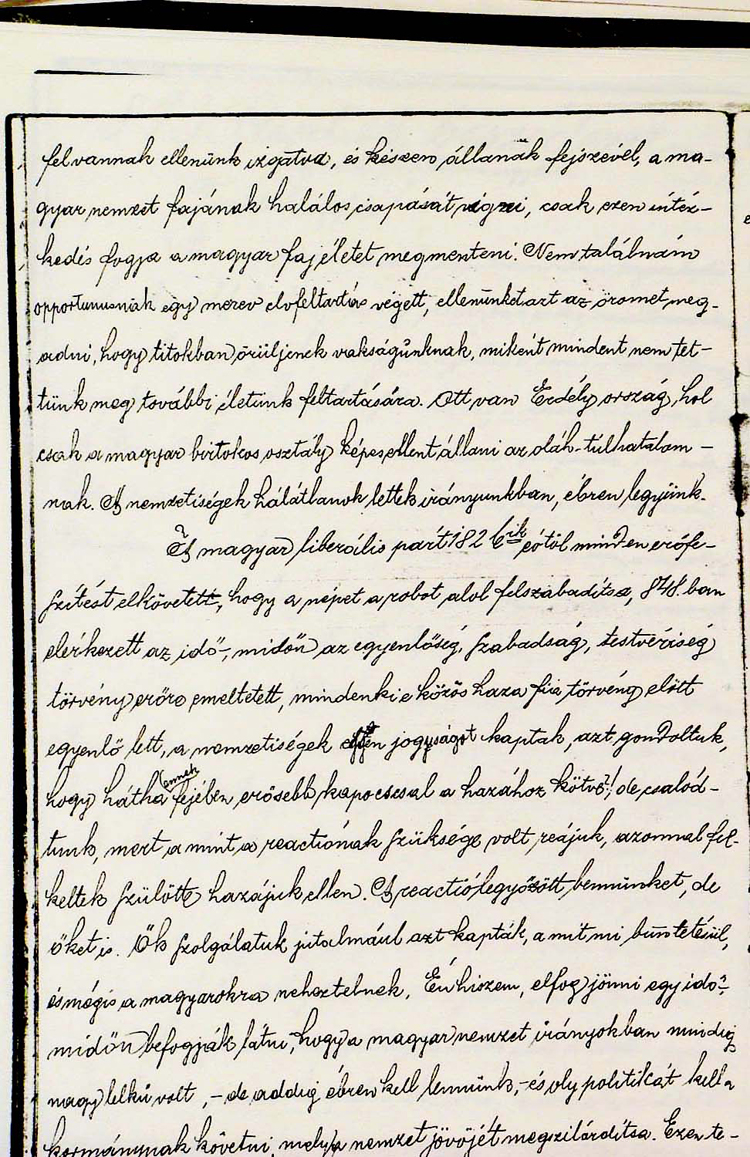 fel vannak ellenünk izgatva, és készen állanak fejszével, a ma-
gyar nemzet fajának halálos csapását végzni, csak ezen intéz-
kedés fogja a magyar faj életet megmenteni. Nem találnám
opportunusnak egy merev elvfeltartás végett, ellenünket azt az öromet meg-
adni, hogy titokban örüljenek vakságunknak, miként mindent nem tet-
tünk meg további életünk feltartására. Ott van Erdély ország, hol
csak a magyar birtokos osztály képes ellent állani az oláh-túlhatalom-
nak. A nemzetiségek hálátlanok lettek irányunkban, ébren legyünk.
A magyar liberális párt 182 ik eótöl minden erőfe-
szítést elkövetett, hogy a népet a robot alol felszabadítsa, 848. ban
elérkezett az idő, midőn az egyenlőség, szabadság, testvériség
törvény erőre emeltetett, mindenki e közös haza fia, törvény elött
egyenlő lett, a nemzetiségek jogyságot kaptak, azt gondoltuk,
hogy hátha ennek fejében erősebb kapocscsal a hazához kötve! de csalód-
tunk, mert a mint a reactiónak szüksége volt reájuk, azonnal fel-
keltek szülötte hazájuk ellen. A reactió legyőzött bennünket, de
őket is. Ők szolgálatuk jutalmául azt kapták, a mit mi büntetésül,
és mégis a magyarokra neheztelnek. Én hiszem, elfog jönni egy idő,
midőn befogják látni, hogy a magyar nemzet irányokban mindig
nagy lelkű volt, - de addig ébren kell lennünk, - és oly politikát kell a
kormánynak követni, mely a nemzet jövőjét megszilárdítsa. Ezen te-